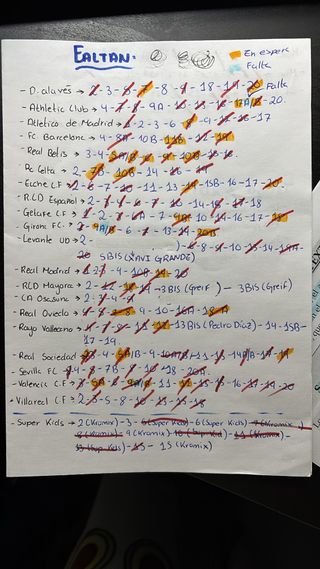 FALTAN:
En espera
Falta
- D. alavés → 2 - 3 - 5 - 7 - 8 - 9 - 18 - 19 - 20 Falta
- Athletic Club → 4 - 7 - 8 - 9A - 10 - 13 - 15 - 17A/B - 20.
- Atletico de Madrid → 1 - 2 - 3 - 6 - 8 - 9 - 16 - 17
- FC. Barcelona → 4 - 8A - 10B - 11B - 11 - 19
- Real Betis → 3 - 4 - 5A/B - 6 - 9 - 10B - 15 - 16
- Rc Celta → 2 - 7B - 10B - 14 - 16 - 19
- Elche C.F → 2 - 6 - 7 - 10 - 11 - 13 - 14 - 15B - 16 - 17 - 20.
- R.C.D Español → 2 - 3 - 4 - 6 - 7 - 10 - 14 - 15 - 17 - 18
- Getafe C.F → 1 - 2 - 3 - 6A - 7 - 9A - 10 - 14 - 16 - 17 - 18
- Girona FC. → 2 - 4A/B - 6 - 7 - 13 - 19 - 20B
- Levante UD → 2 - ) - 6 - 8 - 9 - 10 - 13 - 14 - 19A -
20 5BIS (XAVI GRANDE)
- Real Madrid → 1 - 2 - 4 - 10B - 19 - 20
- RCD Mayorca → 2 - 12 - 18 - 19 - 3BIS (Greif) - 3BIS (Greif)
- CA Osasuna → 2 - 3 - 4 - 9
- Real Oviedo → 4 - 5 - 8 - 9 - 10 - 16A - 18A
- Rayo Vallecano → 4 - 7 - 8 - 11 - 12 - 13 Bis (Pedro Diaz) - 14 - 15B -
17 - 19.
- Real Sociedad → 3 - 4 - 5A/B - 9 - 10A/B - 11 - 13 - 14A/B - 18 - 19
- Sevilla FC → 4 - 8 - 7B - 9 - 10 - 18 - 20A
- Valencia C.F → 3 - 5A - 8 - 9A/B - 11 - 12 - 15 - 15 - 16 - 17 - 19 - 20
- Villareal C.F → 2 - 3 - 5 - 8 - 10 - 13 - 15 - 18
- Super Kids → 2 (Kromix) - 3 - 5 (Super Kids) - 6 (Super Kids) - 7 (Kromix)
8 (Kromix) - 9 (Kromix) - 10 (Super Kid) - 11 (Kromix) -
13 (Super Kids) - 15 - 15 (Kromix)